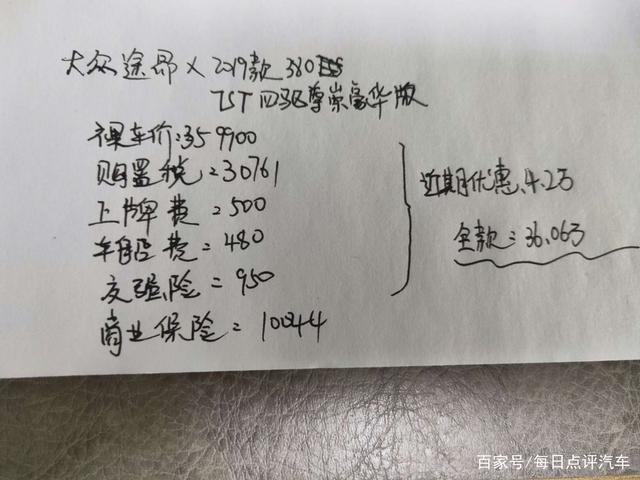 大众途昂X 2019款380
TST 四驱尊崇豪华版
裸车价:359900
购置税:30761
上牌费:500
车船费=480
交强险=950
商业保险=10044
近期优惠4.2万
全款:36.06万
百家号/每日点评汽车